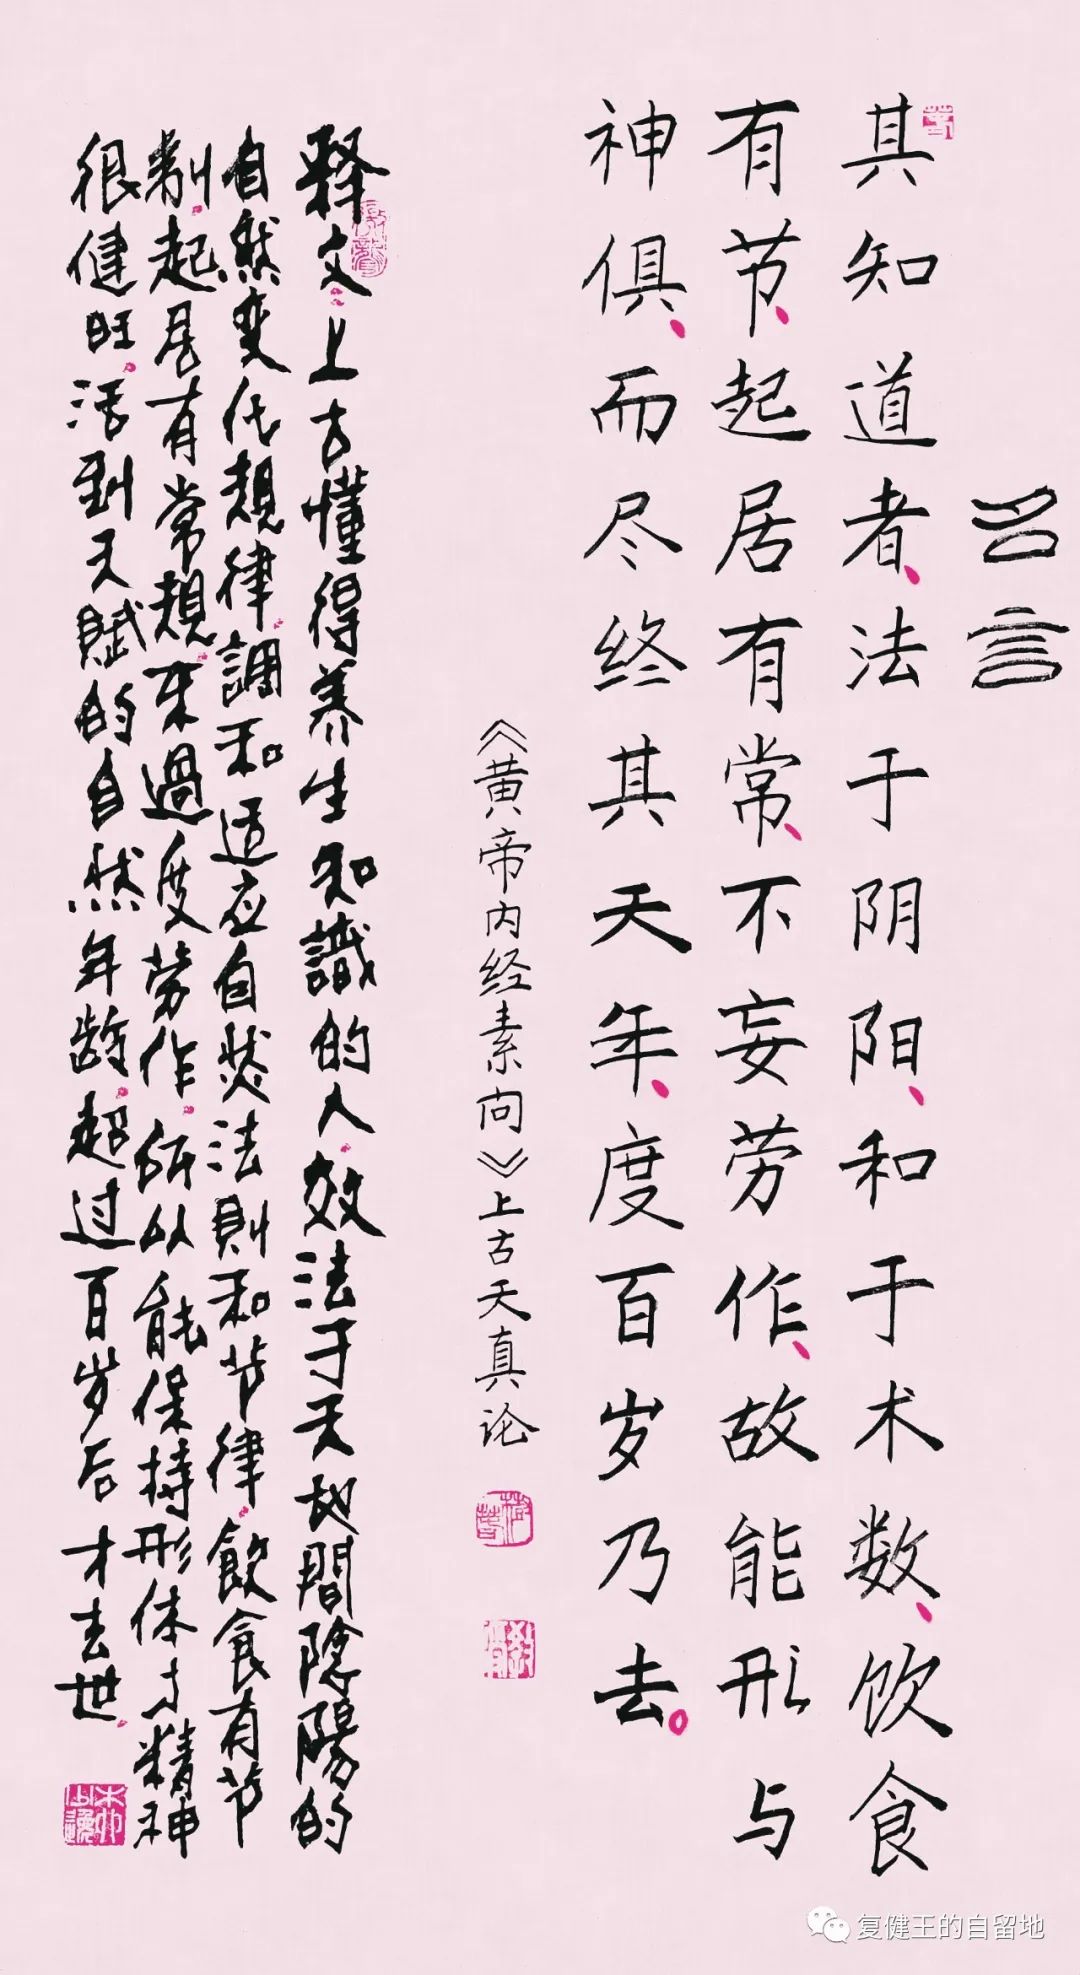 名言
其知道者、法于阴阳、和于术数、饮食
有节、起居有常、不妄劳作、故能形与
神俱、而尽终其天年、度百岁乃去。
《黄帝内经素问》上古天真论
释文：上古懂得养生知識的人。效法于天地間陰陽的
自然变化規律。調和适应自然法則和节律。飲食有节
制。起居有常規。未過度劳作。所以能保持形体与精神
很健旺。活到天賦的自然年龄。超过百岁后才去世。
复健王的自留地